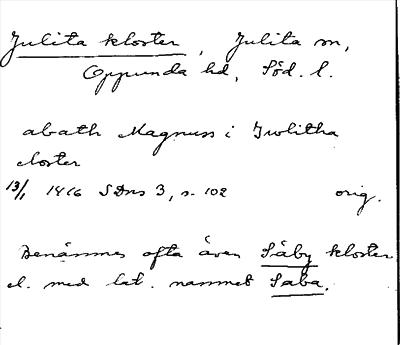 Julita kloster, Julita sn,
Oppunda hd, Söd. l.
abath Magnus i Jwlitha
closter
13/1 1416 SDns 3, s. 102 orig.
Benämnes ofta även Säby kloster
el. med lat. namnet Saba.